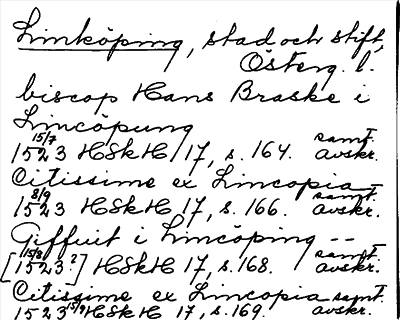 Linköping, stad och stift,
Österg. l.
biscop Hans Braske i
Lincöpung
15/7 samt.
1523 HSkH 17, s. 164. avskr.
Citissime ex Lincopia
8/9 samt.
1523 HSkH 17, s. 166. avskr.
Giffuit i Lincöping --
15/8 samt.
[1523?] HSkH 17, s. 168. avskr.
Citissime ex Lincopia samt.
1523 15/9 HSkH 17, s. 169. avskr.